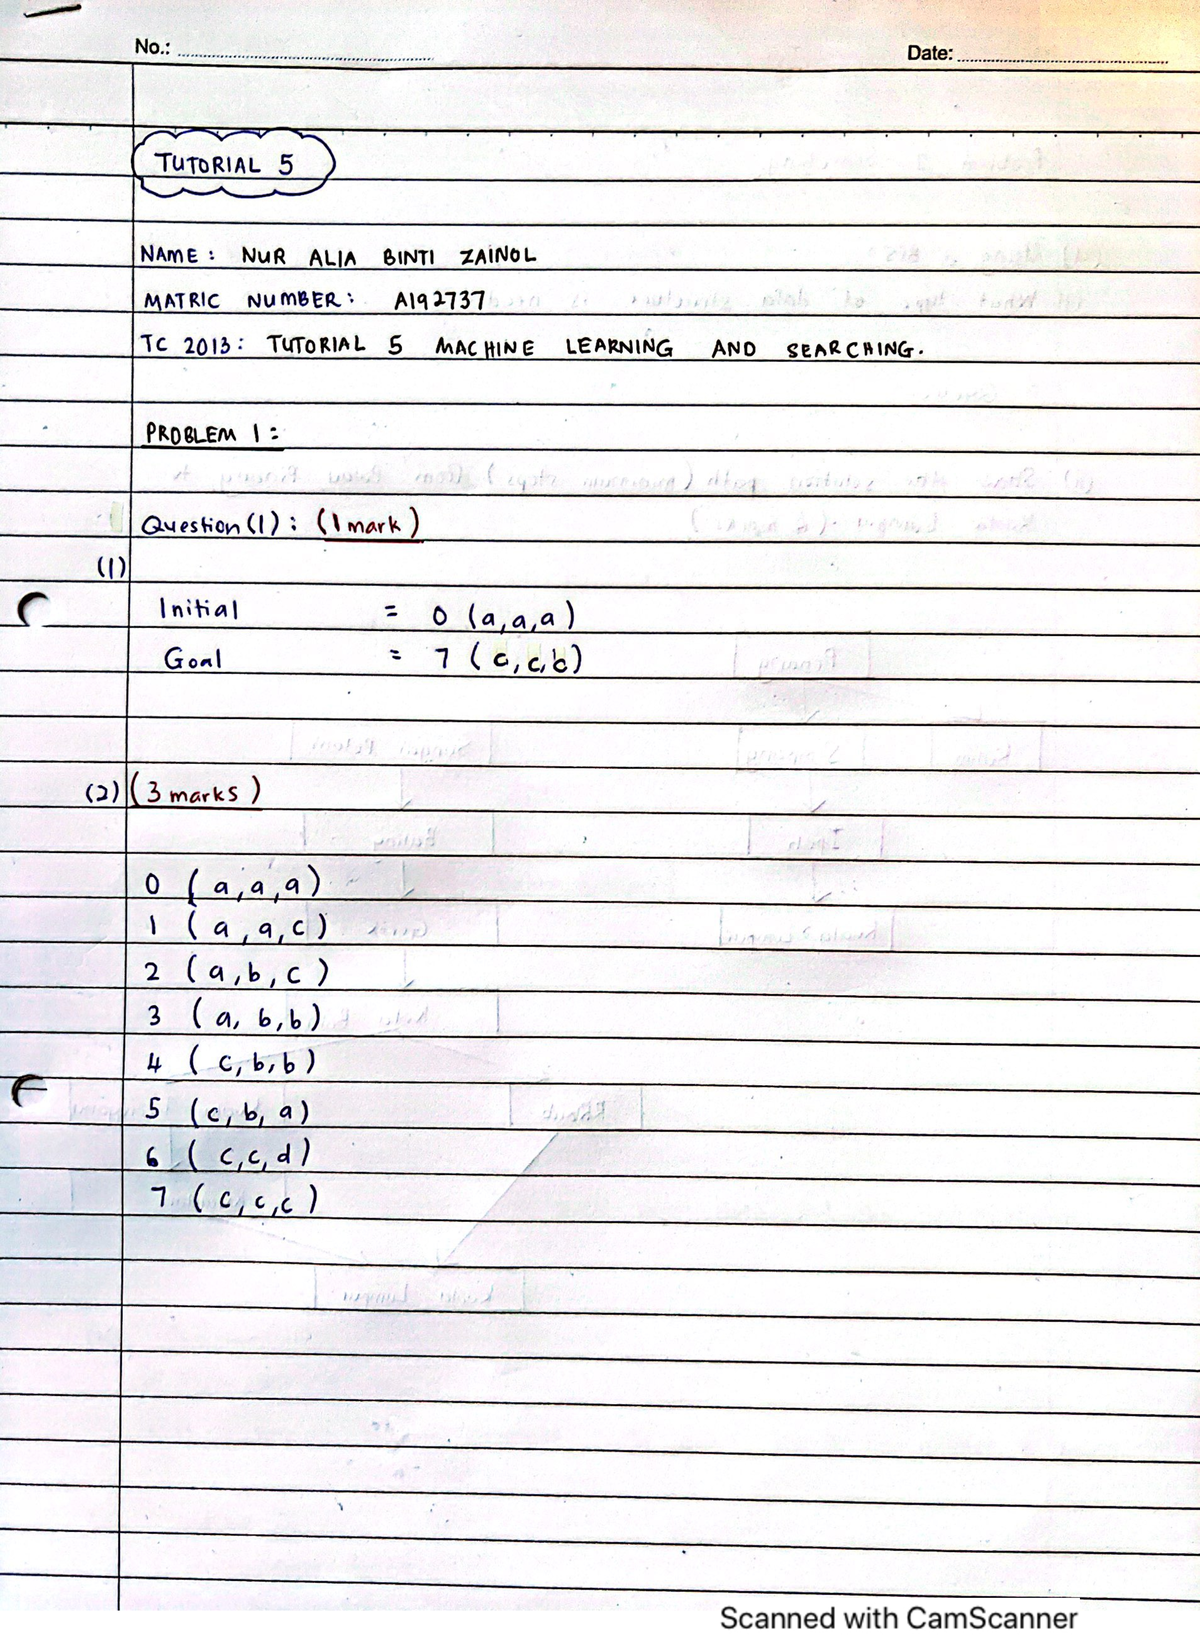 No.: Date:
TUTORIAL 5
NAME : NUR ALIA BINTI ZAINOL
MATRIC NUMBER : A192737
TC 2013 : TUTORIAL 5 MACHINE LEARNING AND SEARCHING.
PROBLEM 1 :
Question (1) : (1 mark)
(1)
Initial = 0 (a,a,a)
Goal = 7 (c,c,c)
(2) (3 marks)
0 (a,a,a)
1 (a,a,c)
2 (a,b,c)
3 (a,b,b)
4 (c,b,b)
5 (c,b,a)
6 (c,c,d)
7 (c,c,c)
Scanned with CamScanner